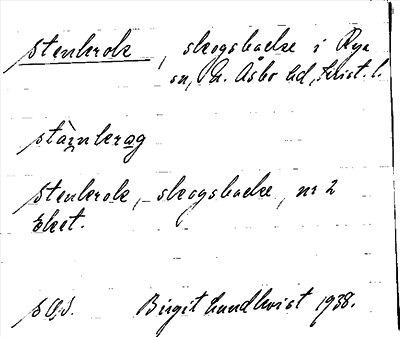 Stenkrok, skogsbacke i Rya
sn, N. Åsbo hd, Krist. l.
Stenkrok, skogsbacke, nr 2
Eket.
Birgit Lundkvist 1938.